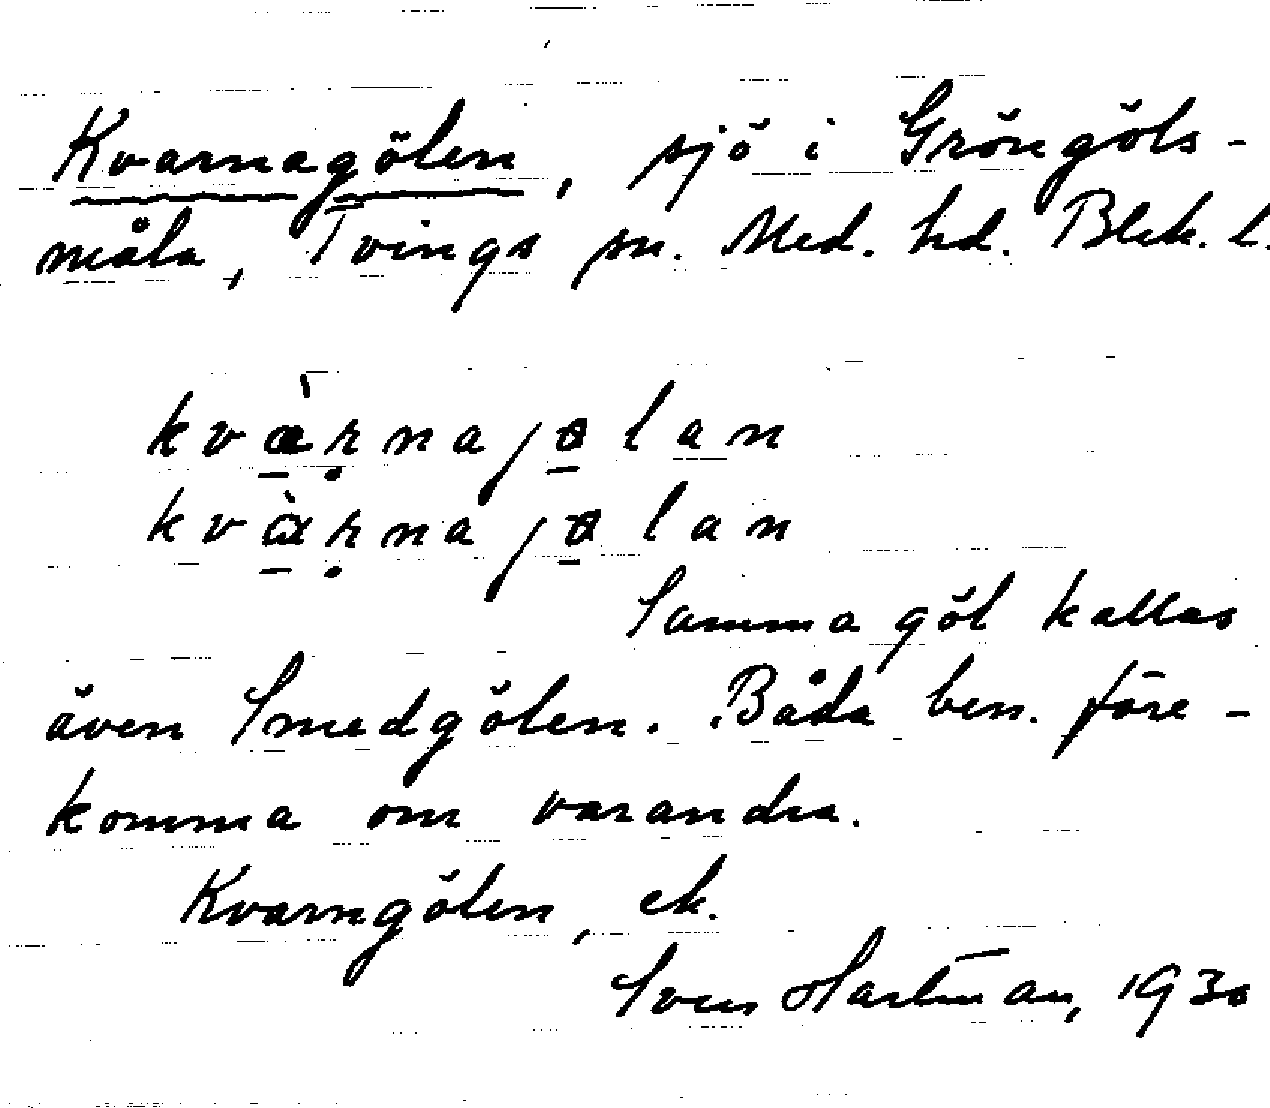 Kvarnagölen, sjö i Gröngöls-
måla, Tvings sn. Med. hd. Blek. l.
kvàṛnajɵlan
kvɑ̀ṛnajɵlan
Samma göl kallas
även Smedgölen. Båda ben. före-
komma om varandra.
Kvarngölen, ek.
Sven Hartman, 1930